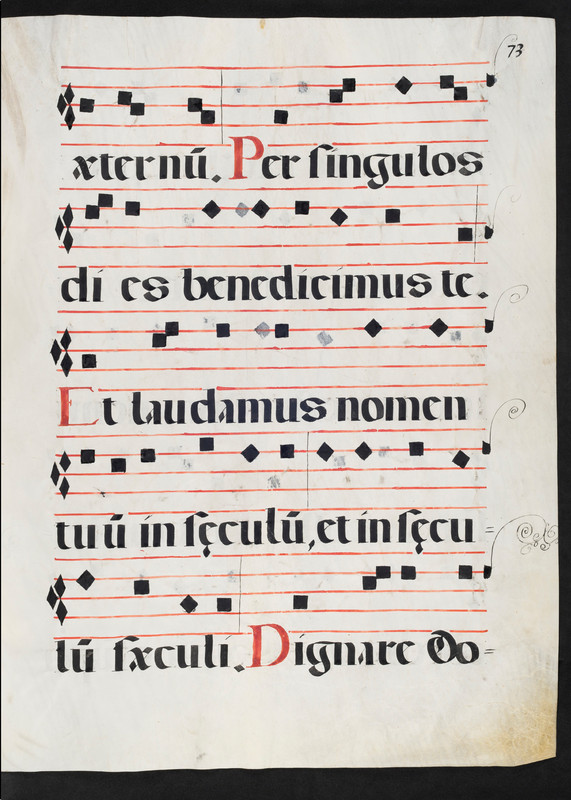 73
xternū. Per singulos
di es benedicimus te.
Et laudamus nomen
tuū in sęculū, et in sęcu=
lū sæculi. Dignare Do=